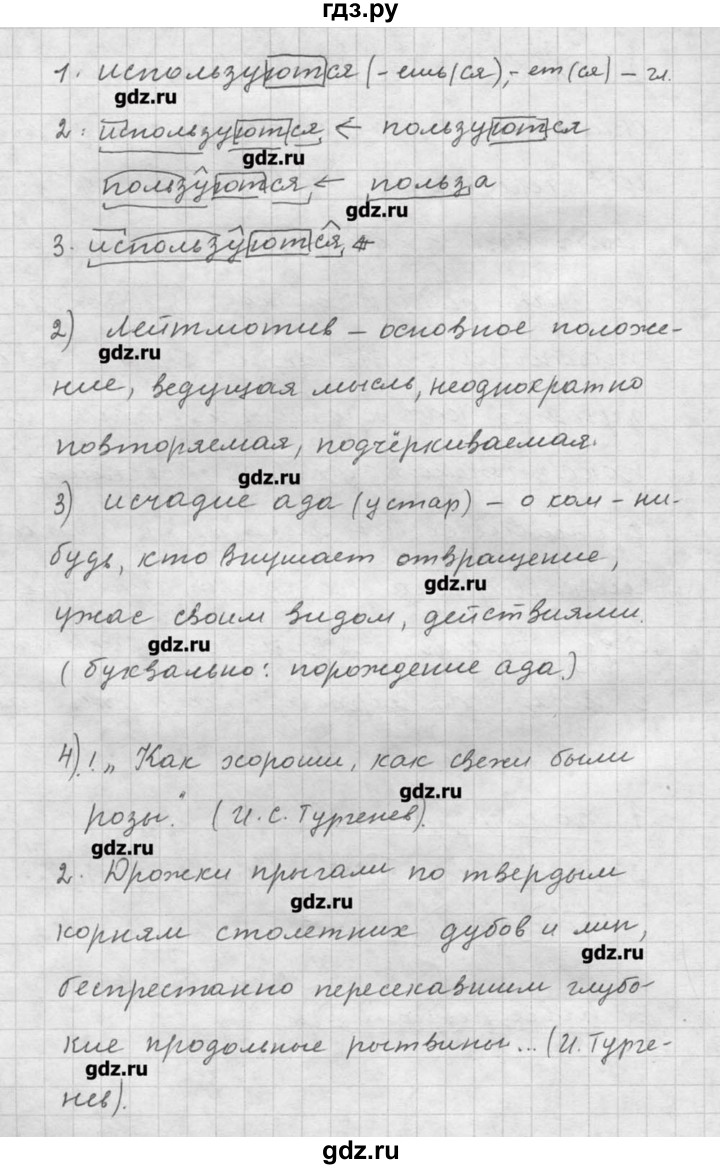 гдз.ру
1. используются (-ешь(ся),-ет(ся) – гл.
gdz.ru
2. используются ← пользуются
gdz.ru
пользуются ← польза
gdz.ru
3. используются
2) Лейтмотив – основное положе-
gdz.ru
ние, ведущая мысль, неоднократно
повторяемая, подчёркиваемая.
gdz.ru
3) исчадие ада (устар) – о ком-ни-
будь, кто внушает отвращение,
gdz.ru
ужас своим видом, действиями.
gdz.ru
(буквально: порождение ада.)
4).! „Как хороши, как свежи были
gdz.ru
розы." (И.С. Тургенев).
gdz.ru
2. Дрожки прыгали по твердым
gdz.ru
корням столетних дубов и лип,
gdz.ru
беспрестанно пересекавшим глубо-
кие продольные рытвины... (И. Турге-
gdz.ru
нев).
gdz.ru